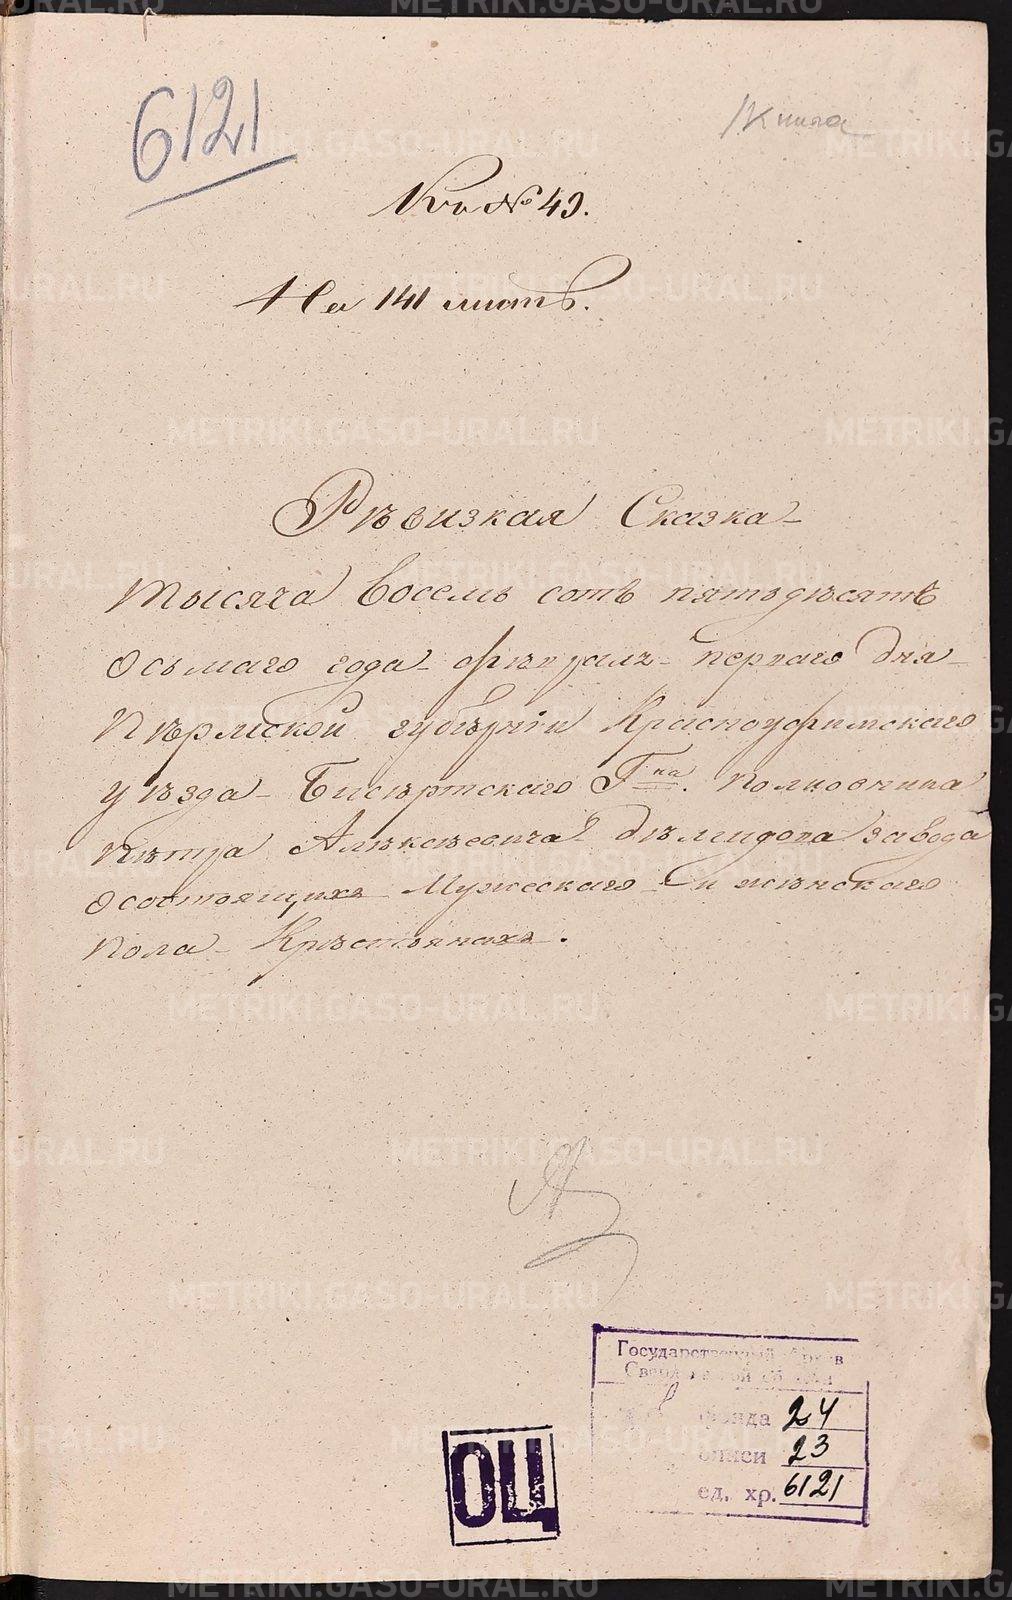 6121
Книга
Къ № 49.
На 141 листѣ.
Рѣвизкая Сказка
тысяча восемь сотъ пятьдѣсятъ
осьмаго года февраля перваго дня
Пѣрмской губѣрніи Красноуфимскаго
уѣзда Бисѣртскаго Гна. полковника
Пѣтра Алѣксѣевича Дѣмидова завода
о состоящихъ Мужескаго и жѣнскаго
пола Крѣстьянахъ.
Государственный Архив
Свердловской области
фонда 24
описи 23
ед. хр. 6121
ОЦ
METRIKI.GASO-URAL.RU